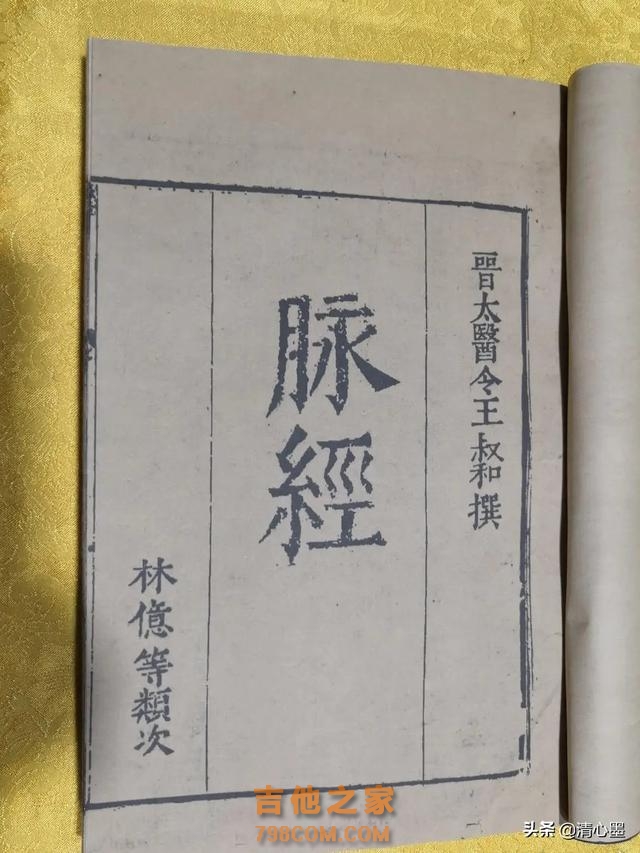 晉太醫令王叔和撰
脉經
林億等類次
吉他之家
798COM.COM
头条 @清心墨